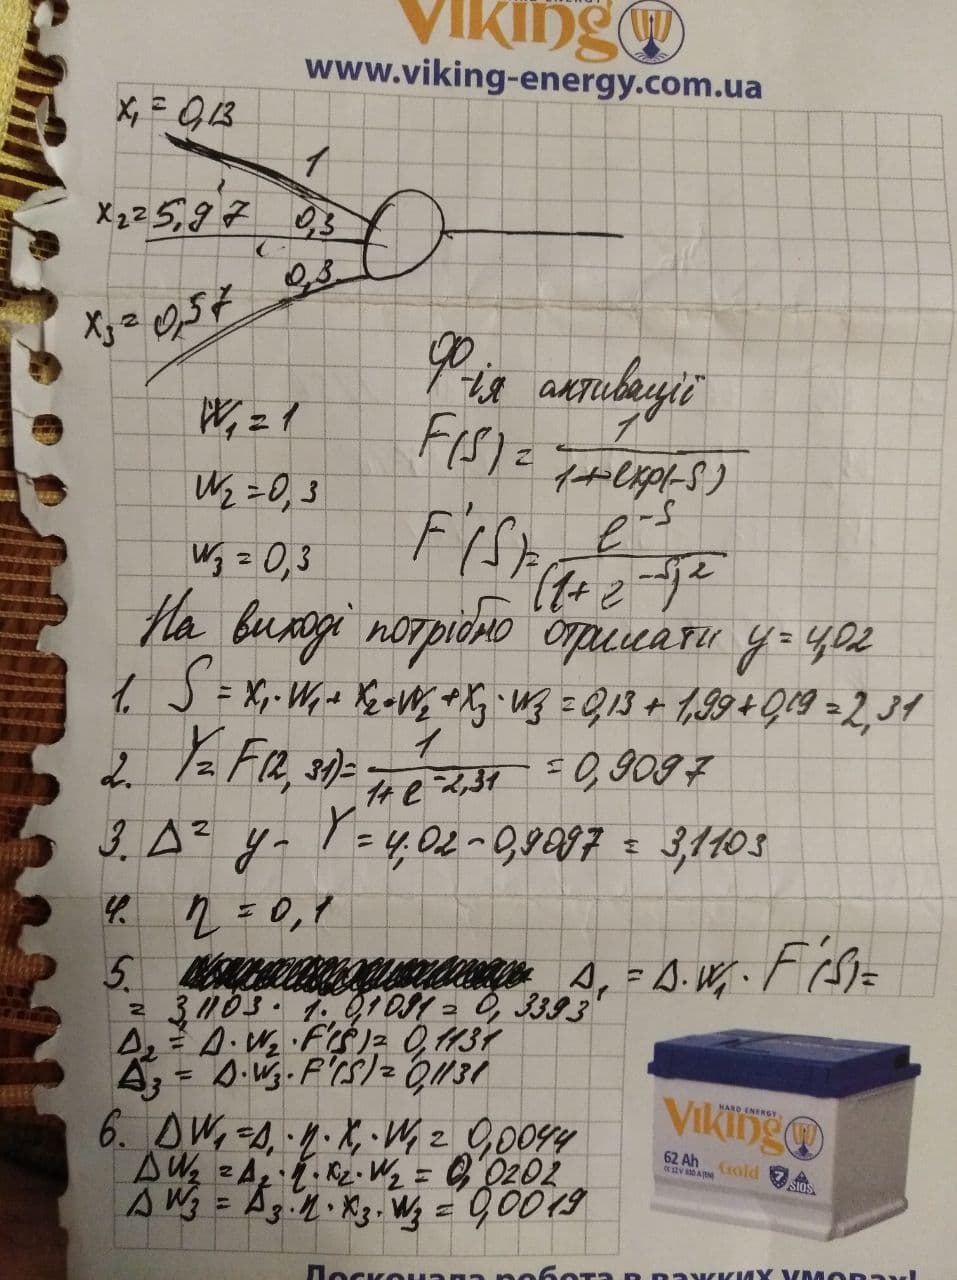 HARD ENERGY
Viking
www.viking-energy.com.ua
x₁ = 0,13
1
x₂ = 5,97
0,3
0,3
x₃ = 0,57
Ф-ія активації
W₁ = 1
F(S) = 1 / (1 + exp(-S))
W₂ = 0,3
F'(S) = e^(-S) / (1 + e^(-S))^2
W₃ = 0,3
На виході потрібно отримати y = 4,02
1. S = x₁·W₁ + x₂·W₂ + x₃·W₃ = 0,13 + 1,99 + 0,19 = 2,31
2. Y = F(2,31) = 1 / (1 + e^(-2,31)) = 0,9097
3. Δ = y - Y = 4,02 - 0,9097 = 3,1103
4. η = 0,1
5. Δ₁ = Δ·W₁·F'(S) =
= 3,1103 · 1 · 0,1091 = 0,3393
Δ₂ = Δ·W₂·F'(S) = 0,1131
Δ₃ = Δ·W₃·F'(S) = 0,1131
6. ΔW₁ = Δ₁·η·x₁·W₁ = 0,0044
ΔW₂ = Δ₂·η·x₂·W₂ = 0,0202
ΔW₃ = Δ₃·η·x₃·W₃ = 0,0019
HARD ENERGY
Viking
62 Ah
Gold
SIOS
Досконала робота в важких умовах!